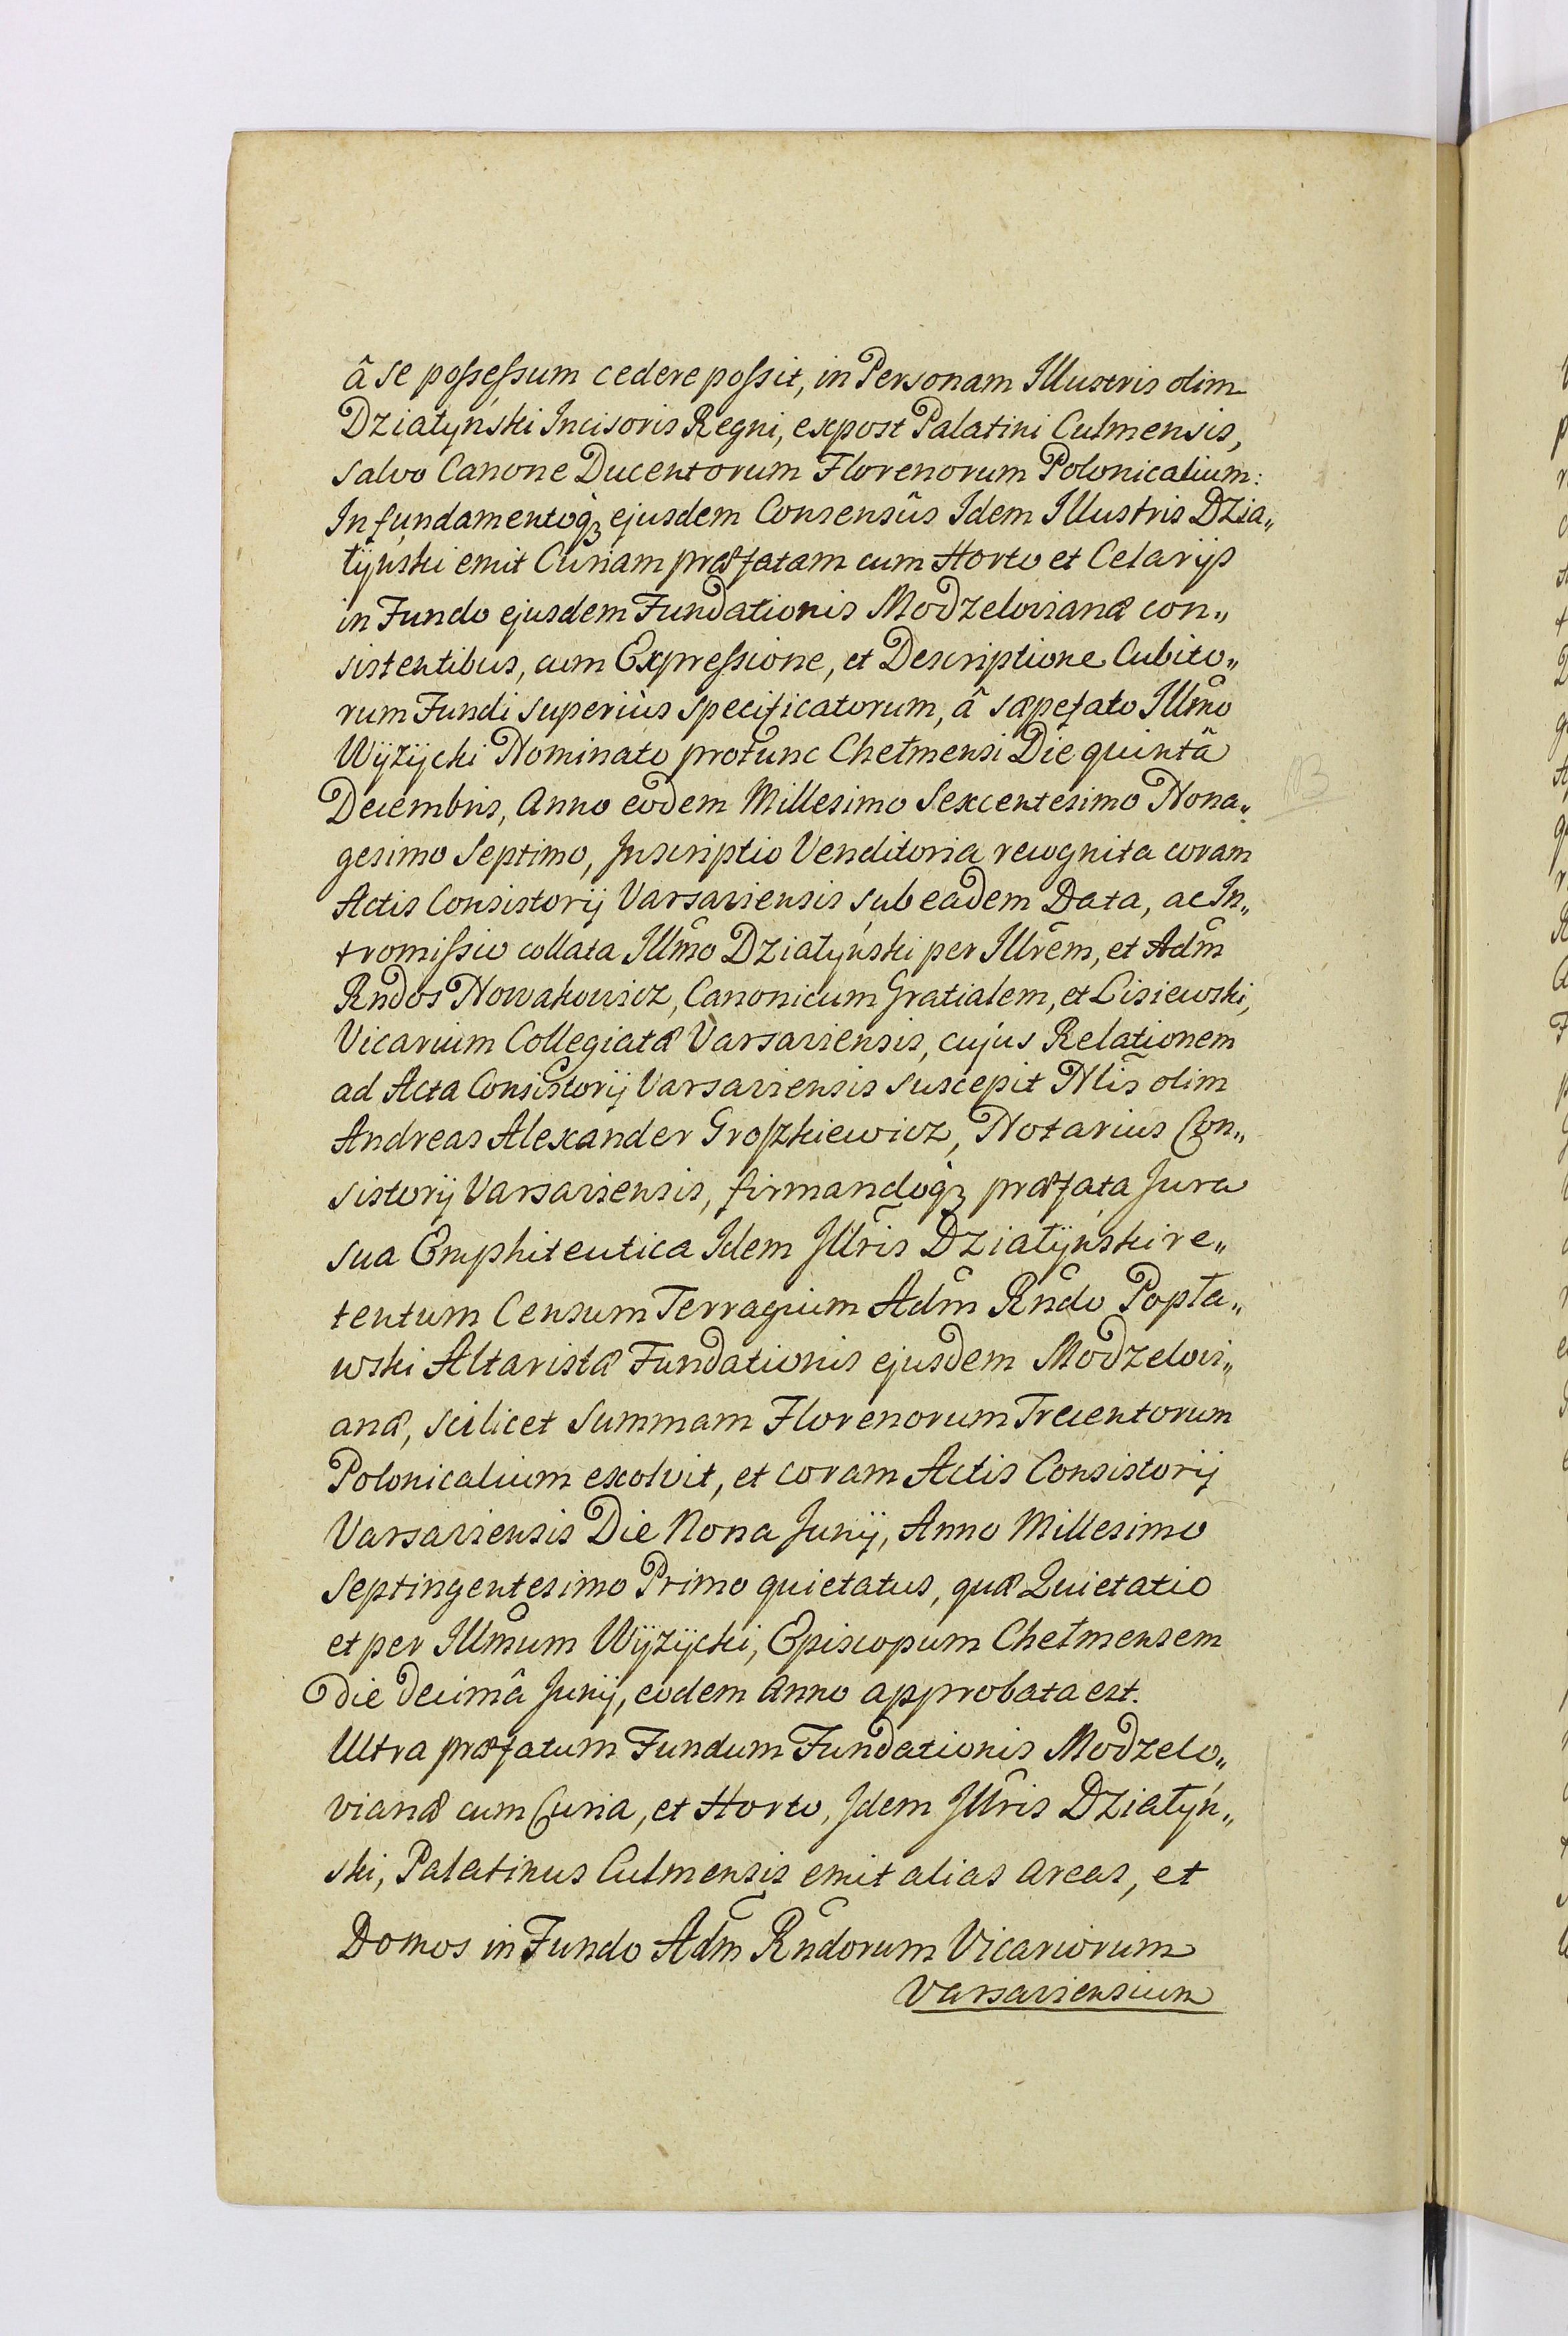 â se poſseſsum cedere poſsit, in Personam Illustris olim
Dziatynski Incisoris Regni, expost Palatini Culmensis,
salvo Canone Ducentorum Florenorum Polonicalium:
In fundamentoq̀ꝫ ejusdem Consensûs Idem Illustris Dzia„
łÿnski emit Curiam præfatam cum Horto et Celarijs
in Fundo ejusdem Fundationis Modzelovianæ con„
sistentibus, cum Expreſsione, et Descriptione Cubito„
rum Fundi superiùs specificatorum, â sæpefato Illm̃o
Wÿżÿcki Nominato protunc Chełmensi Die quintâ
Decembris, Anno eodem Millesimo Sexcentesimo Nona„
gesimo Septimo, Inscriptio Venditoria recognita coram
Actis Consistorij Varsaviensis sub eadem Data, ac In„
tromiſsio collata Illm̃o Działyński per Illr̃em, et Adm̃
Rñdos Nowakowicz, Canonicum Gratialem, et Lisiewski,
Vicarium Collegiatæ Varsaviensis, cujus Relationem
ad Acta Consistorij Varsaviensis suscepit Nl̃is olim
Andreas Alexander Groſzkiewicz, Notarius Con„
sistorij Varsaviensis, firmandoq̀ꝫ præfata Jura
sua Emphiteutica Idem Illr̃is Działÿnski re„
tentum Censum Terragium Adm̃ Rñdo Popła„
wski Altaristæ Fundationis ejusdem Modzelovi„
anæ, scilicet Summam Florenorum Trecentorum
Polonicalium exolvit, et coram Actis Consistorij
Varsaviensis Die Nona Junij, Anno Millesimo
Septingentesimo Primo quietatus, quæ Quietatio
et per Illm̃um Wÿżÿcki, Episcopum Chełmensem
die decimâ Junij, eodem Anno approbata est.
Ultra præfatum Fundum Fundationis Modzelo„
vianæ cum Curia, et Horto, Idem Illr̃is Dziatyń„
ski, Palatinus Culmensis emit alias areas, et
Domos in Fundo Adm̃ Rñdorum Vicariorum
Varsaviensium